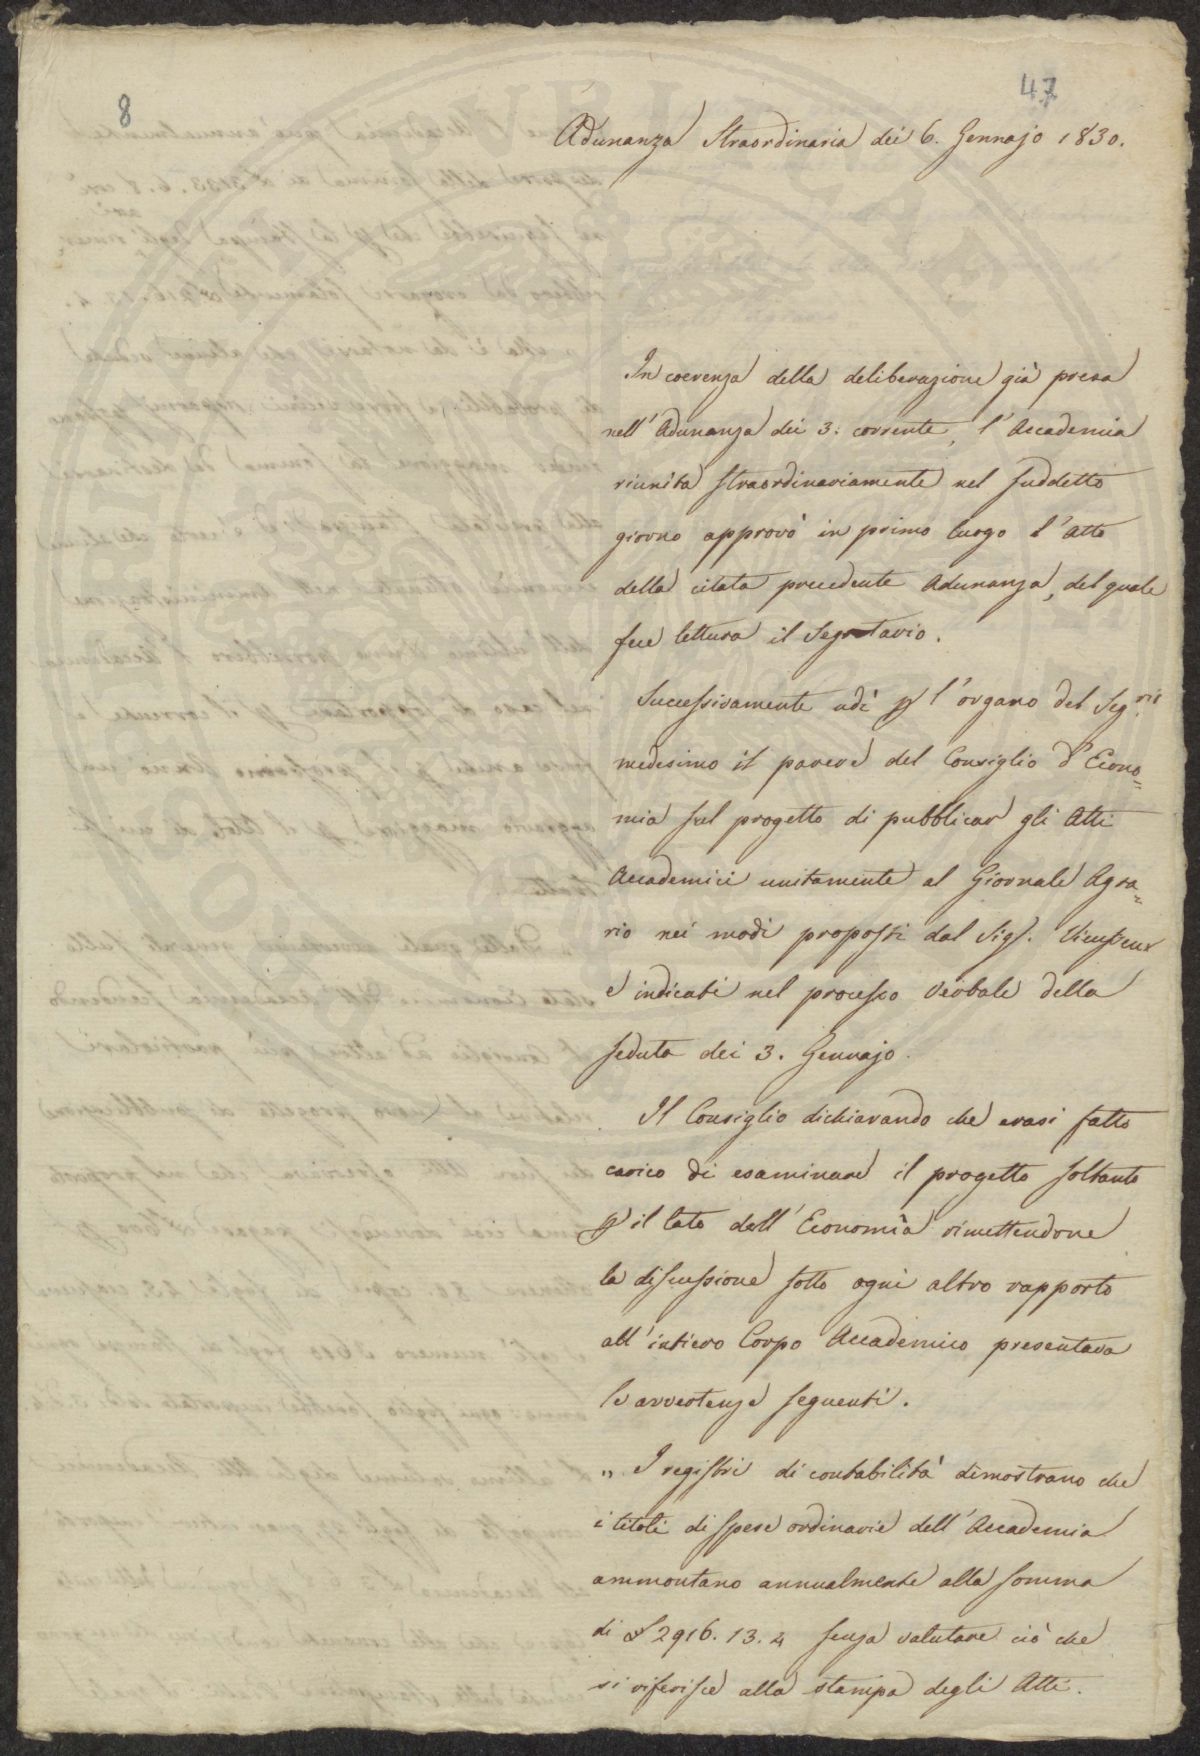 8
47
Adunanza Straordinaria dei 6. Gennajo 1830.
In coerenza della deliberazione già presa
nell'Adunanza dei 3. corrente, l'Accademia
riunita straordinariamente nel suddetto
giorno approvò in primo luogo l'Atto
della citata precedente Adunanza, del quale
fece lettura il Segretario.
Successivamente udì p l'organo del Seg.rio
medesimo il parere del Consiglio d'Econo=
mia sul progetto di pubblicar gli Atti
Accademici unitamente al Giornale Agra=
rio nei modi proposti dal Sig. Vieusseux
e indicati nel processo verbale della
seduta dei 3. Gennajo.
Il Consiglio dichiarando che erasi fatto
carico di esaminare il progetto soltanto
p il lato dell'Economia rimettendone
la discussione sotto ogni altro rapporto
all'intiero Corpo Accademico presentava
le avvertenze seguenti.
„ I registri di contabilità dimostrano che
i titoli di spese ordinarie dell'Accademia
ammontano annualmente alla somma
di £ 2916. 13. 4 senza valutare ciò che
si riferisce alla stampa degli Atti.